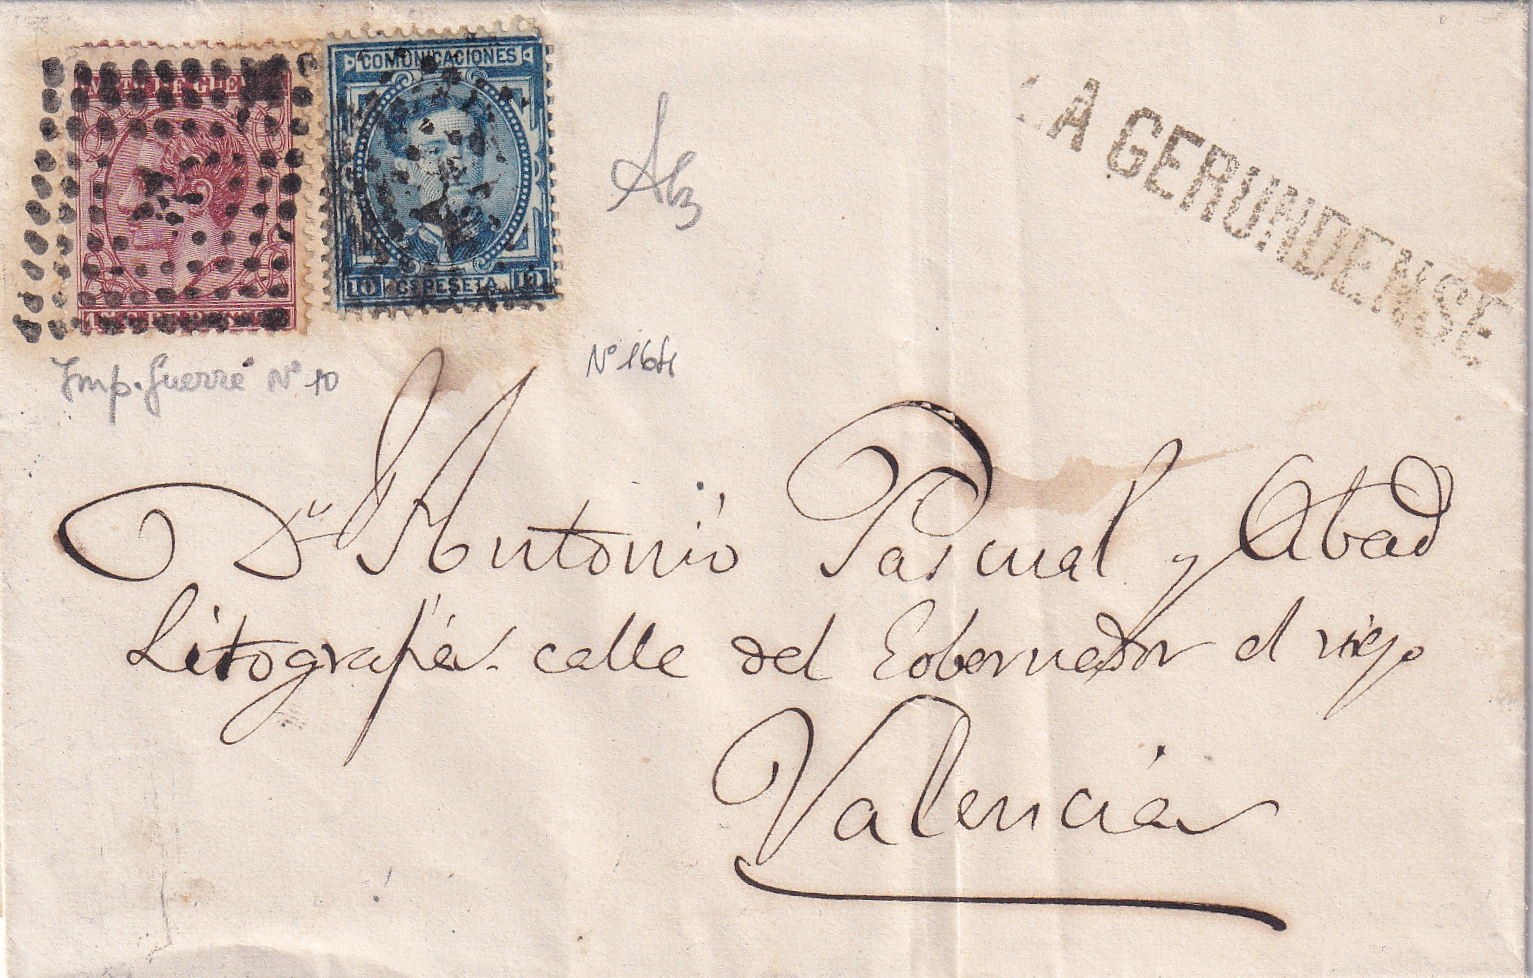 COMUNICACIONES
10 CS PESETA 10
LA GERUNDENSE
Imp. Guerre Nº 10
Nº 164
Dn Antonio Pascual y Abad
Litografía. calle del Gobernador el viejo
Valencia